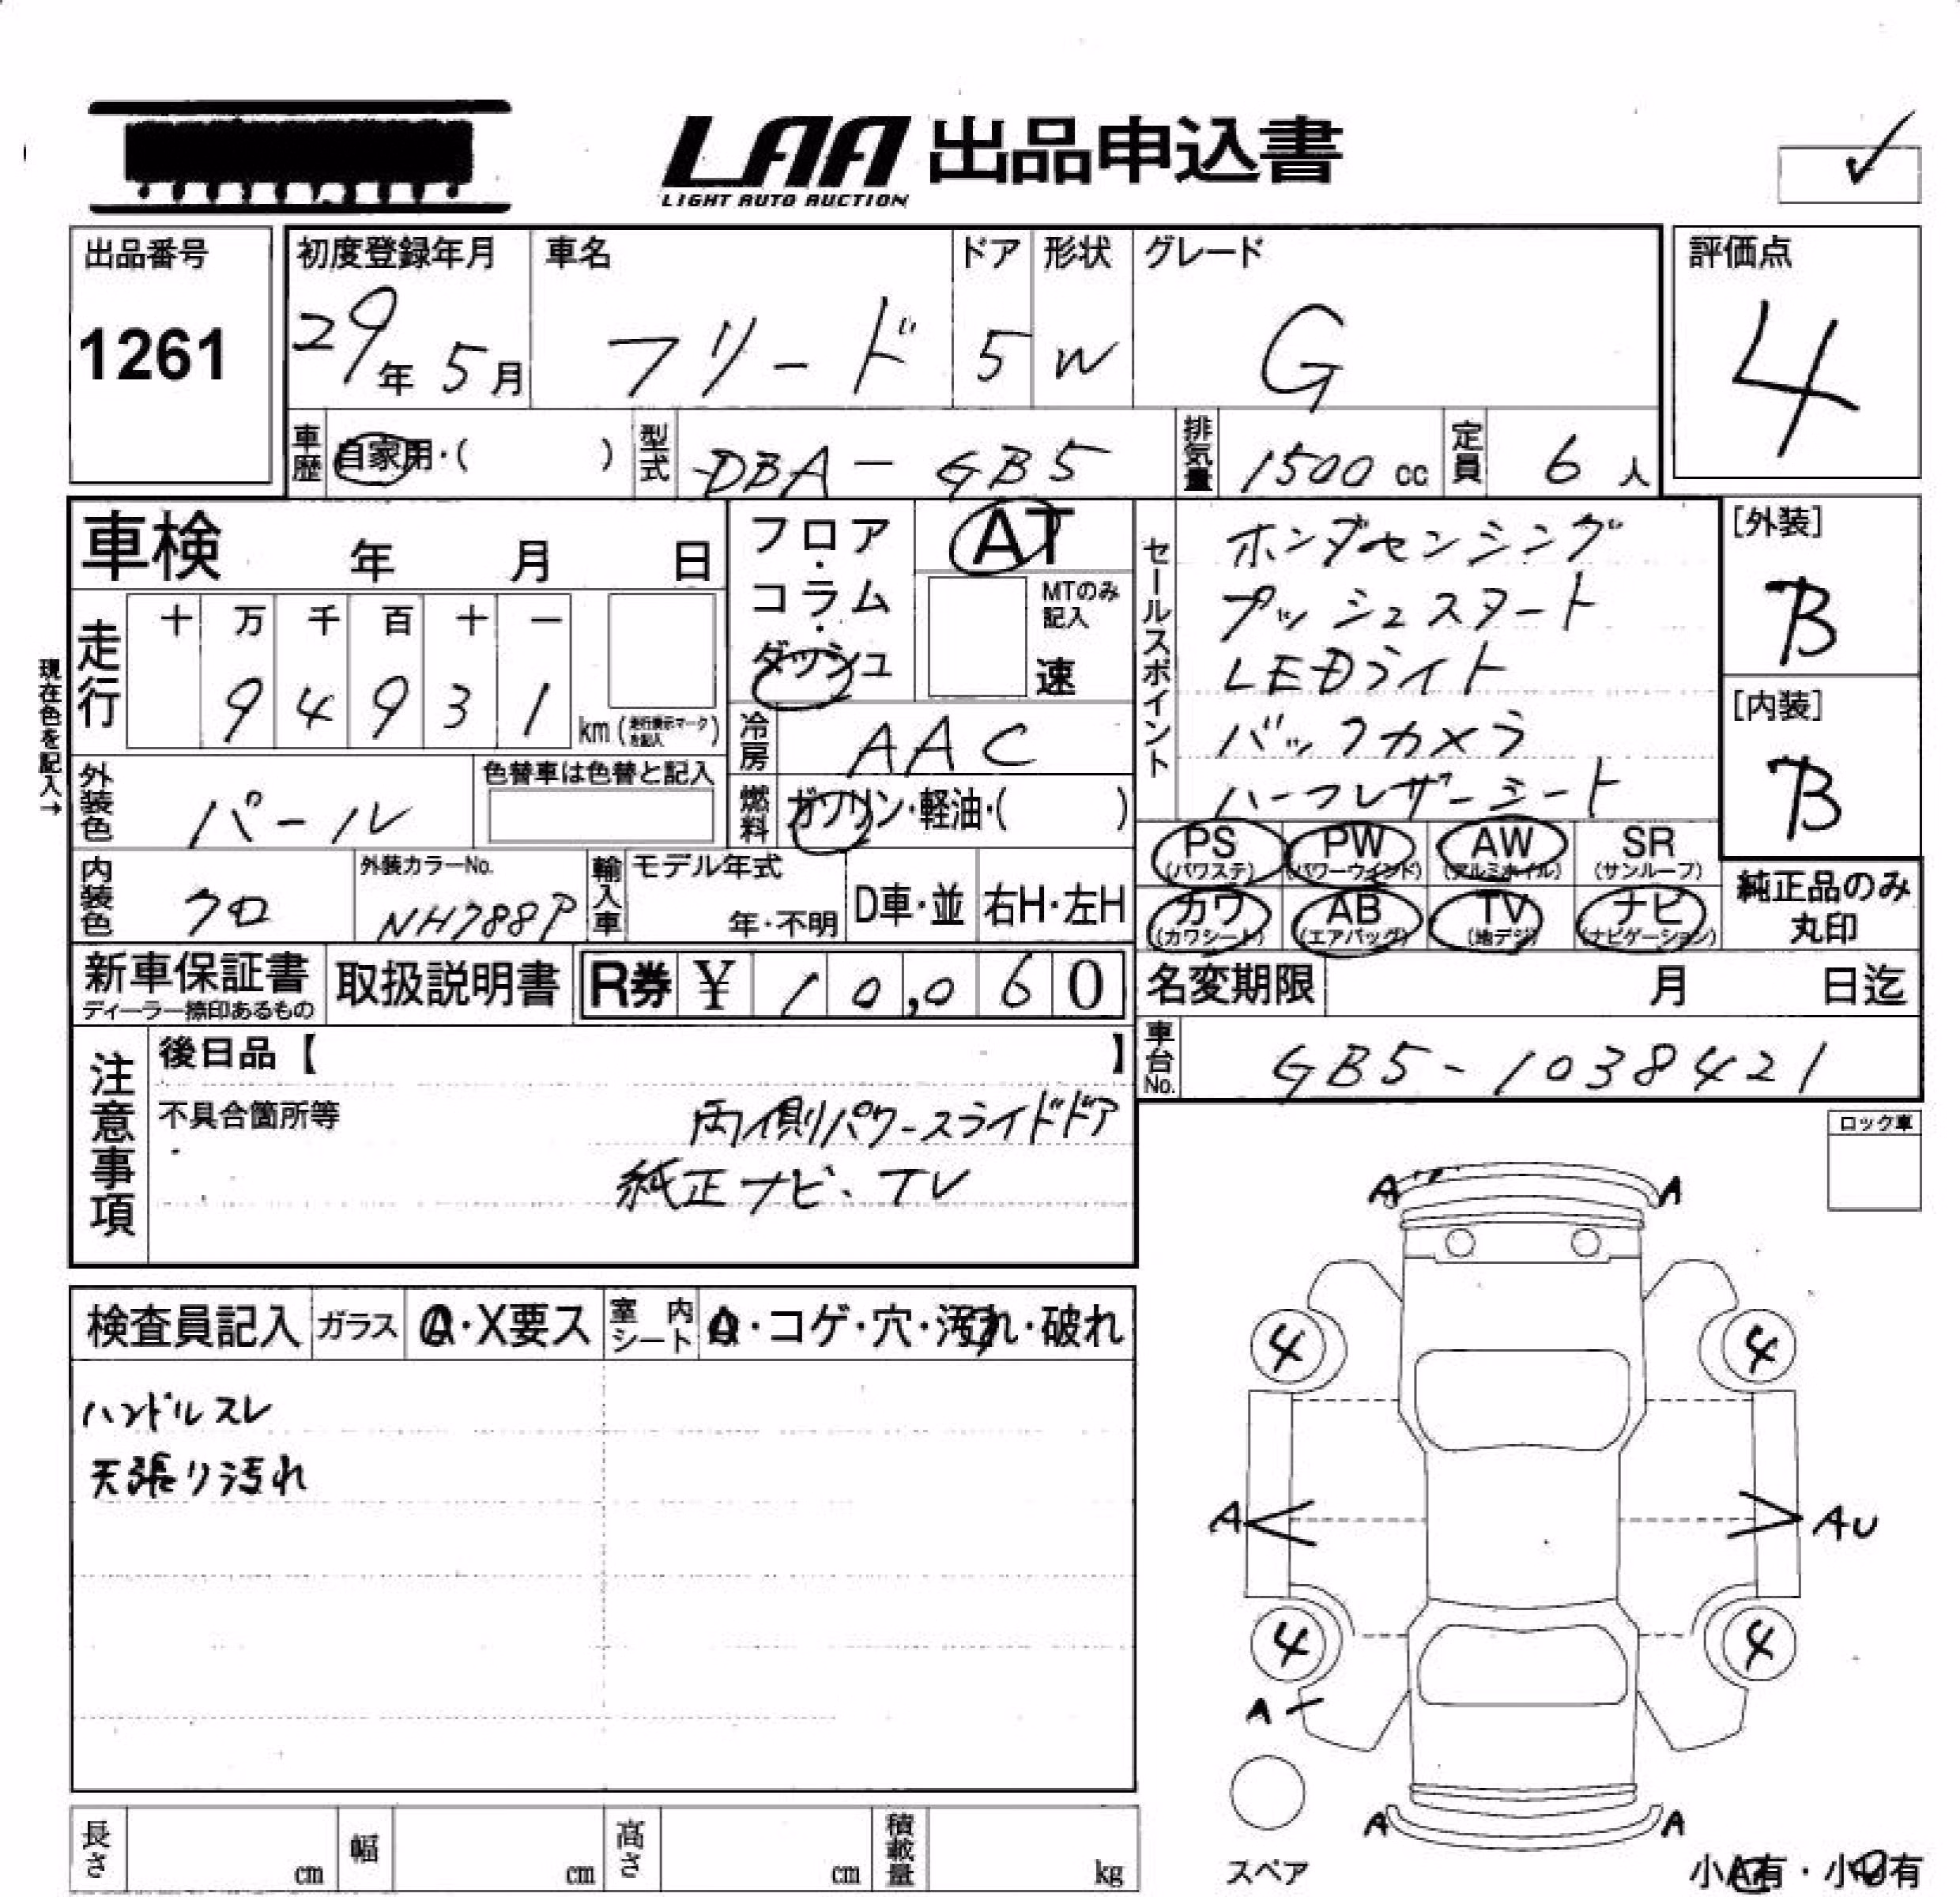 LAA 出品申込書
LIGHT AUTO AUCTION
出品番号
1261
初度登録年月
29年 5月
車名
フリード
ドア
5
形状
W
グレード
G
評価点
4
車歴
自家用・( )
型式
DBA-GB5
排気量
1500 cc
定員
6 人
車検 年 月 日
フロア・コラム・ダッシュ
AT
MTのみ記入
速
セールスポイント
ホンダセンシング
プッシュスタート
LEDライト
バックカメラ
ハーフレザーシート
[外装]
B
[内装]
B
現在色を記入→
走行
十 万 千 百 十 一
9 4 9 3 1
km (走行表示マークを記入)
冷房
AAC
外装色
パール
色替車は色替と記入
燃料
ガソリン・軽油・( )
PS (パワステ) PW (パワーウインド) AW (アルミホイル) SR (サンルーフ)
カワ (カワシート) AB (エアバッグ) TV (地デジ) ナビ (ナビゲーション)
純正品のみ丸印
内装色
クロ
外装カラーNo.
NH788P
輸入車
モデル年式
年・不明
D車・並
右H・左H
新車保証書
ディーラー捺印あるもの
取扱説明書
R券 ¥ 10,060
名変期限 月 日迄
車台No.
GB5-1038421
注意事項
後日品【 】
不具合箇所等
両側パワースライドドア
純正ナビ、TV
ロック車
検査員記入
ガラス
A・X要ス
室内シート
・コゲ・穴・汚れ・破れ
ハンドルスレ
天張り汚れ
A A
4 4
A AU
4 4
A
A A
スペア
小A有・小U有
長さ cm
幅 cm
高さ cm
積載量 kg